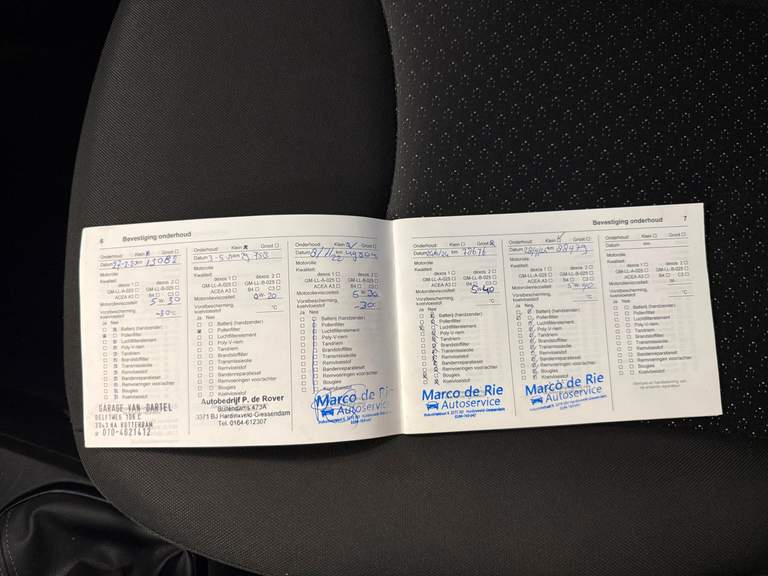 6 Bevestiging onderhoud
Onderhoud: Klein Groot
Datum km 13082
Motorolie
Kwaliteit:
dexos 1 dexos 2
GM-LL-A-025 GM-LL-B-025
ACEA A3 B4 C3
Motorolieviscositeit 5w30
Vorstbescherming, koelvloeistof -30°C
Ja Nee
Batterij (handzender)
Pollenfilter
Luchtfilterelement
Poly V-riem
Tandriem
Brandstoffilter
Transmissieolie
Remvloeistof
Bandenreparatieset
Remvoeringen voor/achter
Bougies
Koelvloeistof
GARAGE VAN DARTEL
3043 NA ROTTERDAM
010-4621412
Onderhoud: Klein Groot
Datum km
Motorolie
Kwaliteit:
dexos 1 dexos 2
GM-LL-A-025 GM-LL-B-025
ACEA A3 B4 C3
Motorolieviscositeit 0w20
Vorstbescherming, koelvloeistof °C
Ja Nee
Batterij (handzender)
Pollenfilter
Luchtfilterelement
Poly V-riem
Tandriem
Brandstoffilter
Transmissieolie
Remvloeistof
Bandenreparatieset
Remvoeringen voor/achter
Bougies
Koelvloeistof
Autobedrijf P. de Rover
Buitendams 473A
3371 BJ Hardinxveld-Giessendam
Tel. 0184-612307
Onderhoud: Klein Groot
Datum km
Motorolie
Kwaliteit:
dexos 1 dexos 2
GM-LL-A-025 GM-LL-B-025
ACEA A3 B4 C3
Motorolieviscositeit
Vorstbescherming, koelvloeistof °C
Ja Nee
Batterij (handzender)
Pollenfilter
Luchtfilterelement
Poly V-riem
Tandriem
Brandstoffilter
Transmissieolie
Remvloeistof
Bandenreparatieset
Remvoeringen voor/achter
Bougies
Koelvloeistof
Marco de Rie
Autoservice
Bevestiging onderhoud 7
Onderhoud: Klein Groot
Datum km 72676
Motorolie
Kwaliteit:
dexos 1 dexos 2
GM-LL-A-025 GM-LL-B-025
ACEA A3 B4 C3
Motorolieviscositeit 5w40
Vorstbescherming, koelvloeistof °C
Ja Nee
Batterij (handzender)
Pollenfilter
Luchtfilterelement
Poly V-riem
Tandriem
Brandstoffilter
Transmissieolie
Remvloeistof
Bandenreparatieset
Remvoeringen voor/achter
Bougies
Koelvloeistof
Marco de Rie
Autoservice
Onderhoud: Klein Groot
Datum km 88479
Motorolie
Kwaliteit:
dexos 1 dexos 2
GM-LL-A-025 GM-LL-B-025
ACEA A3 B4 C3
Motorolieviscositeit 5w40
Vorstbescherming, koelvloeistof °C
Ja Nee
Batterij (handzender)
Pollenfilter
Luchtfilterelement
Poly V-riem
Tandriem
Brandstoffilter
Transmissieolie
Remvloeistof
Bandenreparatieset
Remvoeringen voor/achter
Bougies
Koelvloeistof
Marco de Rie
Autoservice
Onderhoud: Klein Groot
Datum km
Motorolie
Kwaliteit:
dexos 1 dexos 2
GM-LL-A-025 GM-LL-B-025
ACEA A3 B4 C3
Motorolieviscositeit
Vorstbescherming, koelvloeistof °C
Ja Nee
Batterij (handzender)
Pollenfilter
Luchtfilterelement
Poly V-riem
Tandriem
Brandstoffilter
Transmissieolie
Remvloeistof
Bandenreparatieset
Remvoeringen voor/achter
Bougies
Koelvloeistof